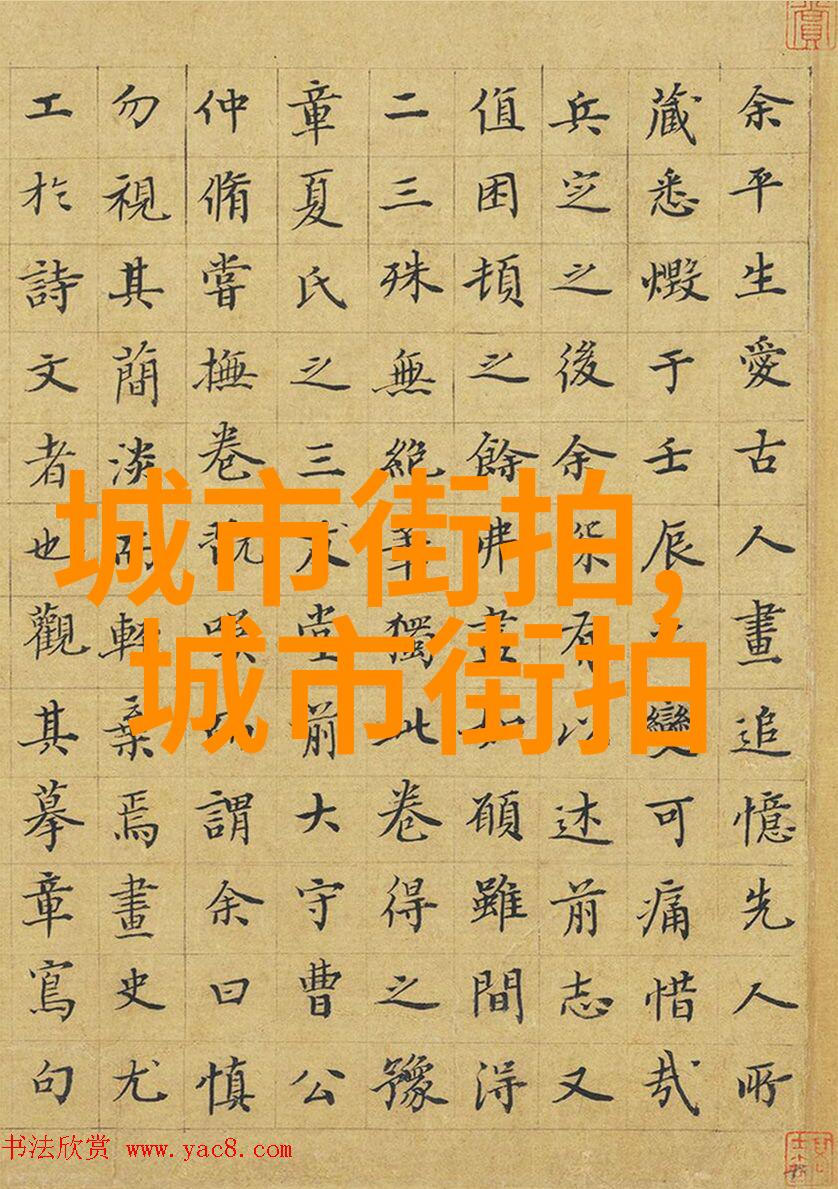 余平生愛古人畫追憶先人所
藏悉燬于壬辰變可痛惜哉
兵定之後余有以述前志又
值困頓之餘弗盡如願雖間得
二三殊無絕筆獨此卷得之豫
章夏氏之三友堂前大守曹公
仲脩嘗撫卷謂余曰慎
勿視其簡淡而輕棄焉畫史尤
工於詩文者也觀其摹章寫句
城市街拍,
城市街拍
书法欣赏 www.yac8.com